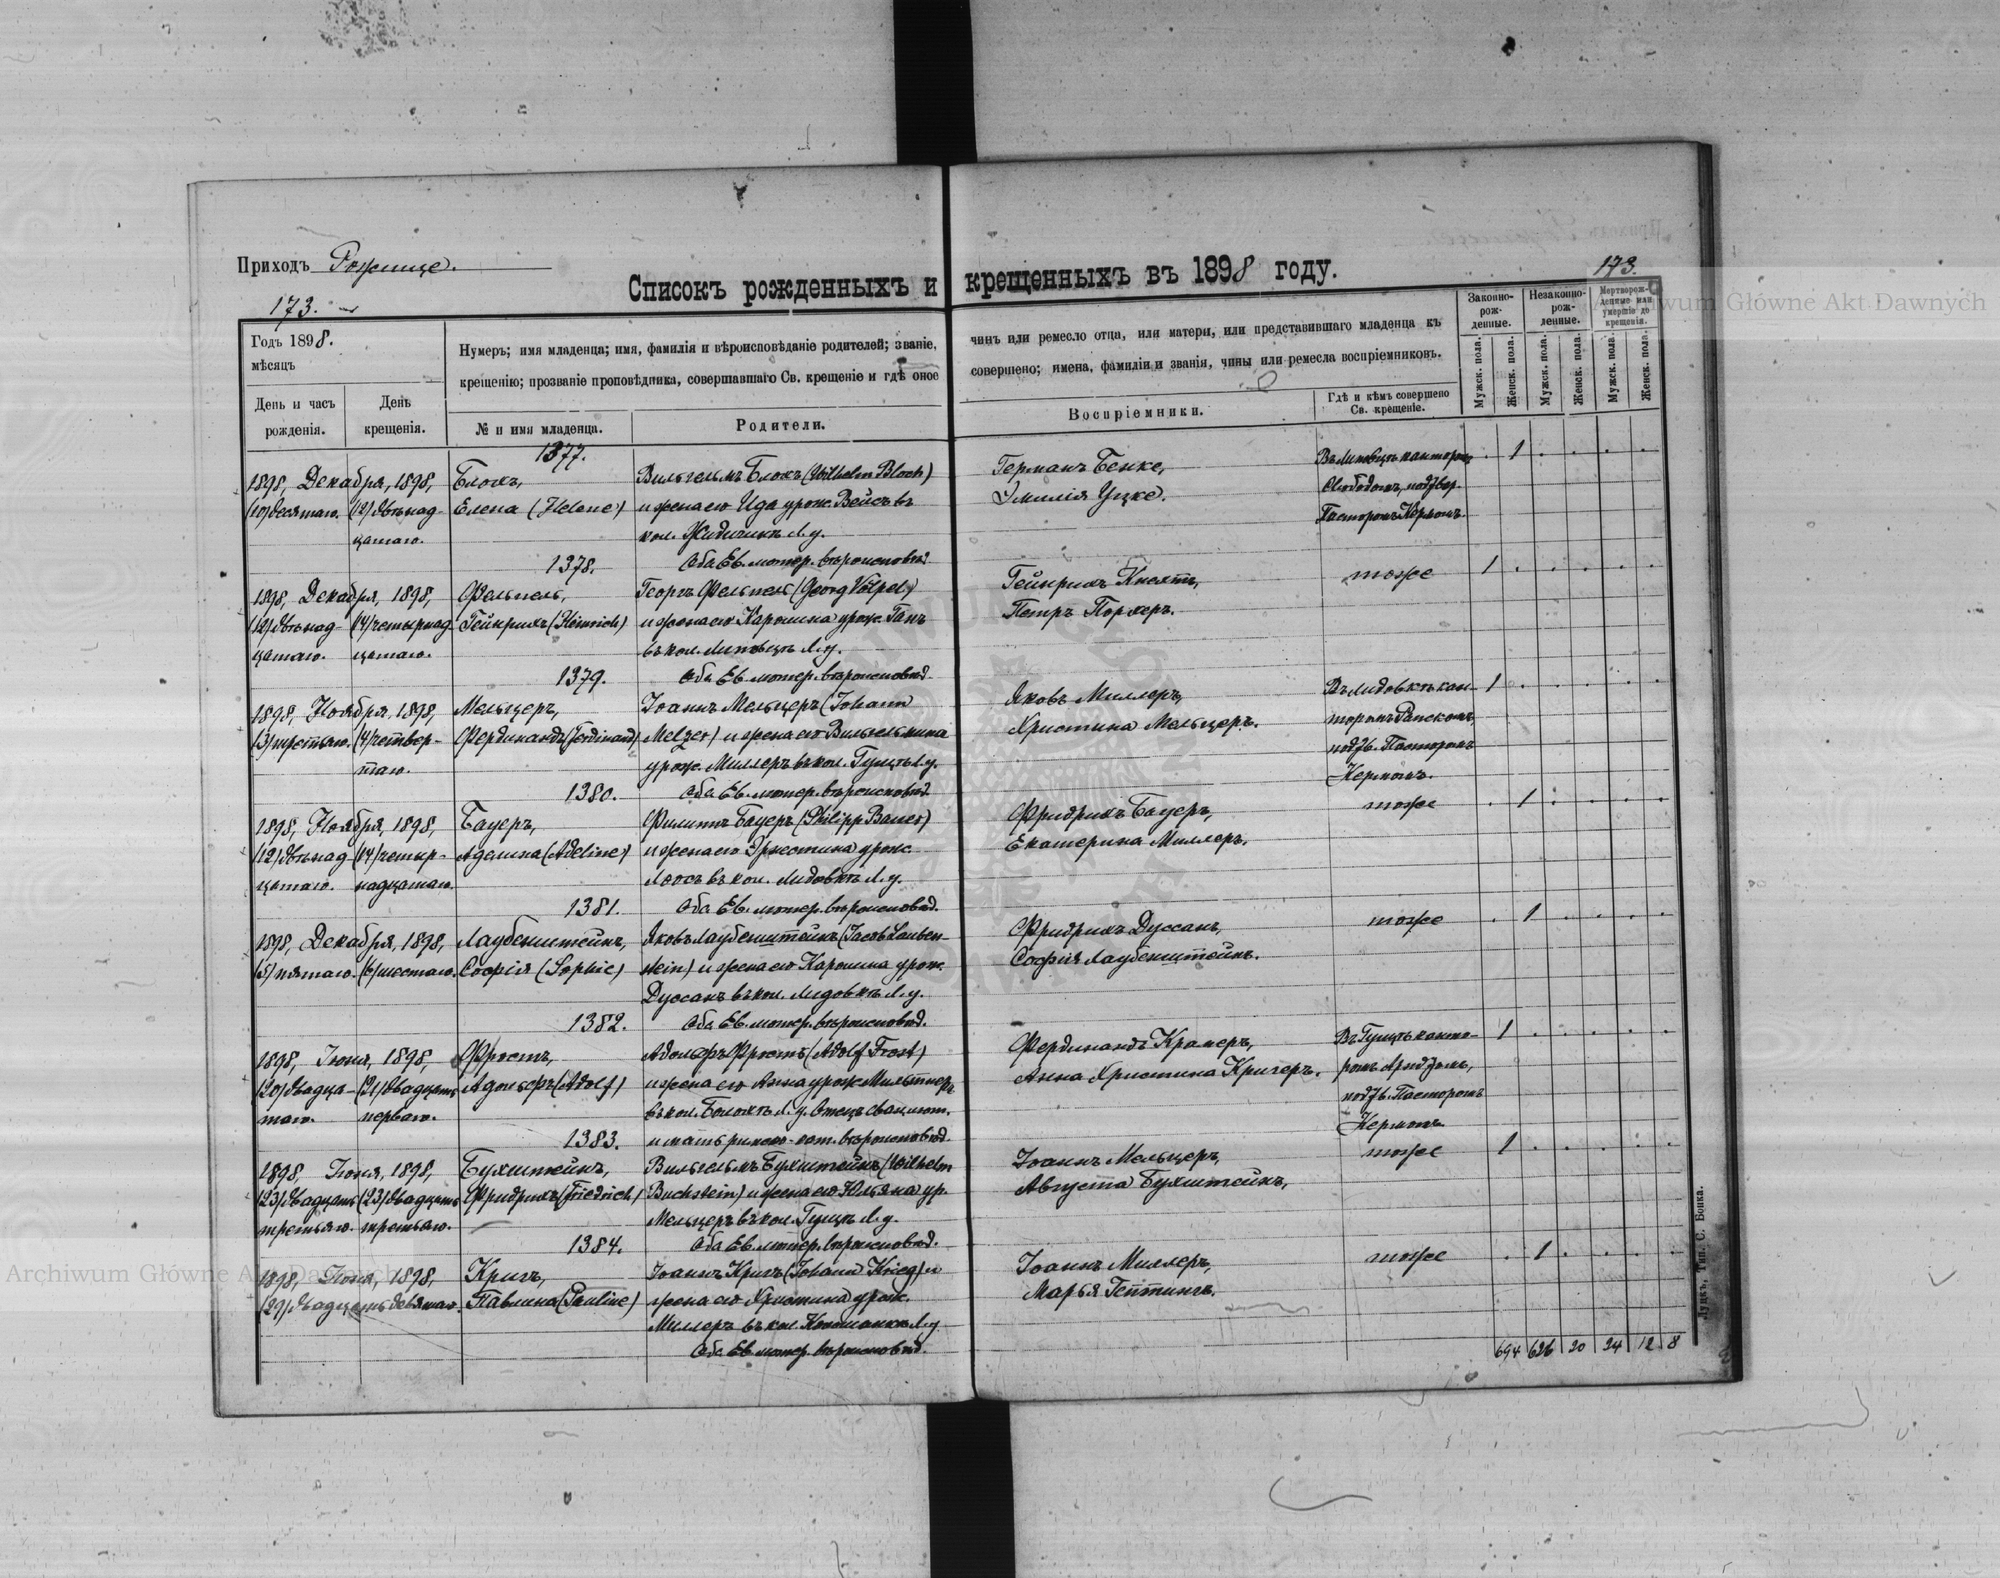 Приходъ Рожище.
173.
173.
Списокъ рожденныхъ и крещенныхъ въ 1898 году.
Годъ 1898.
мѣсяцъ
Нумеръ; имя младенца; имя, фамилія и вѣроисповѣданіе родителей; званіе,
чинъ или ремесло отца, или матери, или представившаго младенца къ
крещенію; прозваніе проповѣдника, совершавшаго Св. крещеніе и гдѣ оное
совершено; имена, фамиліи и званія, чины или ремесла воспріемниковъ.
Законно-
рож-
денные.
Незаконно-
рож-
денные.
Мертворож-
денные или
умершіе до
крещенія.
День и часъ
рожденія.
День
крещенія.
№ и имя младенца.
Родители.
Воспріемники.
Гдѣ и кѣмъ совершено
Св. крещеніе.
Мужск. пола.
Женск. пола.
Мужск. пола.
Женск. пола.
Мужск. пола.
Женск. пола.
1377.
1898, Декабря, 1898,
(10) десятаго. (12) двѣнад-
цатаго.
Блохъ,
Елена (Helene)
Вильгельмъ Блохъ (Wilhelm Bloch)
и жена его Ида урож. Вейсъ въ
кол. Жидичинъ Л. у.
Оба Ев. лютер. вѣроисповѣд.
Германъ Бенке,
Эмилія Уцке.
подтвер.
1
1378.
1898, Декабря, 1898,
(12) двѣнад- (14) четырнад-
цатаго. цатаго.
Фельпель,
Гейнрихъ (Heinrich)
Георгъ Фельпель (Georg Völpel)
и жена его Каролина урож. Ганъ
въ кол. Л. у.
Оба Ев. лютер. вѣроисповѣд.
Гейнрихъ
Петръ
тоже
1
1379.
1898, Ноября, 1898,
(3) третьяго. (4) четвер-
таго.
Мельцеръ,
Фердинандъ (Ferdinand)
Іоаннъ Мельцеръ (Johann
Melzer) и жена его Вильгельмина
урож. Миллеръ въ кол. Гущъ Л. у.
Оба Ев. лютер. вѣроисповѣд.
Яковъ Миллеръ,
Христина Мельцеръ.
Въ Лидовкѣ кан-
торомъ
подтв. Пасторомъ
Керномъ.
1
1380.
1898, Ноября, 1898,
(12) двѣнад- (14) четыр-
цатаго. надцатаго.
Бауеръ,
Аделина (Adeline)
Филиппъ Бауеръ (Philipp Bauer)
и жена его Эрнестина урож.
Лоосъ въ кол. Лидовкѣ Л. у.
Оба Ев. лютер. вѣроисповѣд.
Фридрихъ Бауеръ,
Екатерина Миллеръ.
тоже
1
1381.
1898, Декабря, 1898,
(5) пятаго. (6) шестаго.
Лаубенштейнъ,
Софія (Sophie)
Яковъ Лаубенштейнъ (Jacob Lauben-
stein) и жена его Каролина урож.
Дуссанъ въ кол. Лидовкѣ Л. у.
Оба Ев. лютер. вѣроисповѣд.
Фридрихъ Дуссанъ,
Софія Лаубенштейнъ.
тоже
1
1382.
1898, Іюня, 1898,
(20) двадца- (21) двадцать
таго. перваго.
Фростъ,
Адольфъ (Adolf)
Адольфъ Фростъ (Adolf Frost)
и жена его Анна урож.
въ кол. Л. у. Отецъ Еван. лют.
и мать римско-кат. вѣроисповѣд.
Фердинандъ Крамеръ,
Анна Христина Кригеръ.
Въ Гущъ канто-
ромъ
подтв. Пасторомъ
Керномъ.
1
1383.
1898, Іюня, 1898,
(23) двадцать (23) двадцать
третьяго. третьяго.
Бухштейнъ,
Фридрихъ (Friedrich)
Вильгельмъ Бухштейнъ (Wilhelm
Buchstein) и жена его Юльяна ур.
Мельцеръ въ кол. Гущъ Л. у.
Оба Ев. лютер. вѣроисповѣд.
Іоаннъ Мельцеръ,
Августа Бухштейнъ,
тоже
1
1384.
1898, Іюня, 1898,
(29) двадцать девятаго.
Кригъ,
Павлина (Pauline)
Іоаннъ Кригъ (Johann Krieg) и
жена его Христина урож.
Миллеръ въ кол. Л. у.
Оба Ев. лютер. вѣроисповѣд.
Іоаннъ Миллеръ,
Марья Геттингъ.
тоже
1
694 626 20 24 12 8
Луцкъ, Тип. С. Бонка.
Archiwum Główne Akt Dawnych
Archiwum Główne Akt Dawnych